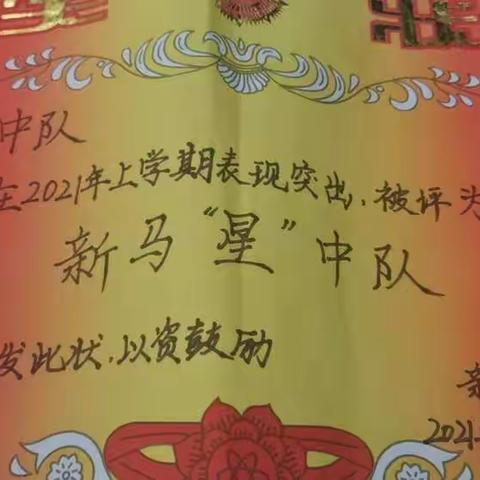 中队
在2021年上学期表现突出,被评为
新马“星”中队
发此状,以资鼓励
新
2021.